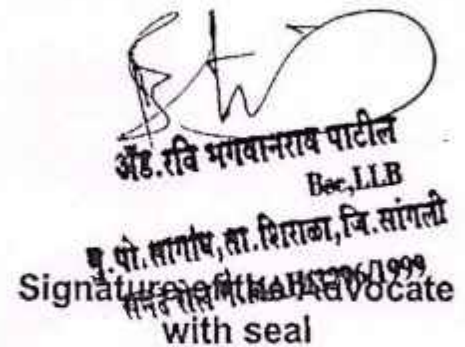 अ‍ॅड.रवि भगवानराव पाटील
Bsc,LLB
मु.पो.सागांव,ता.शिराळा,जि.सांगली
सनद रोल नं.
Signature of the Advocate
with seal